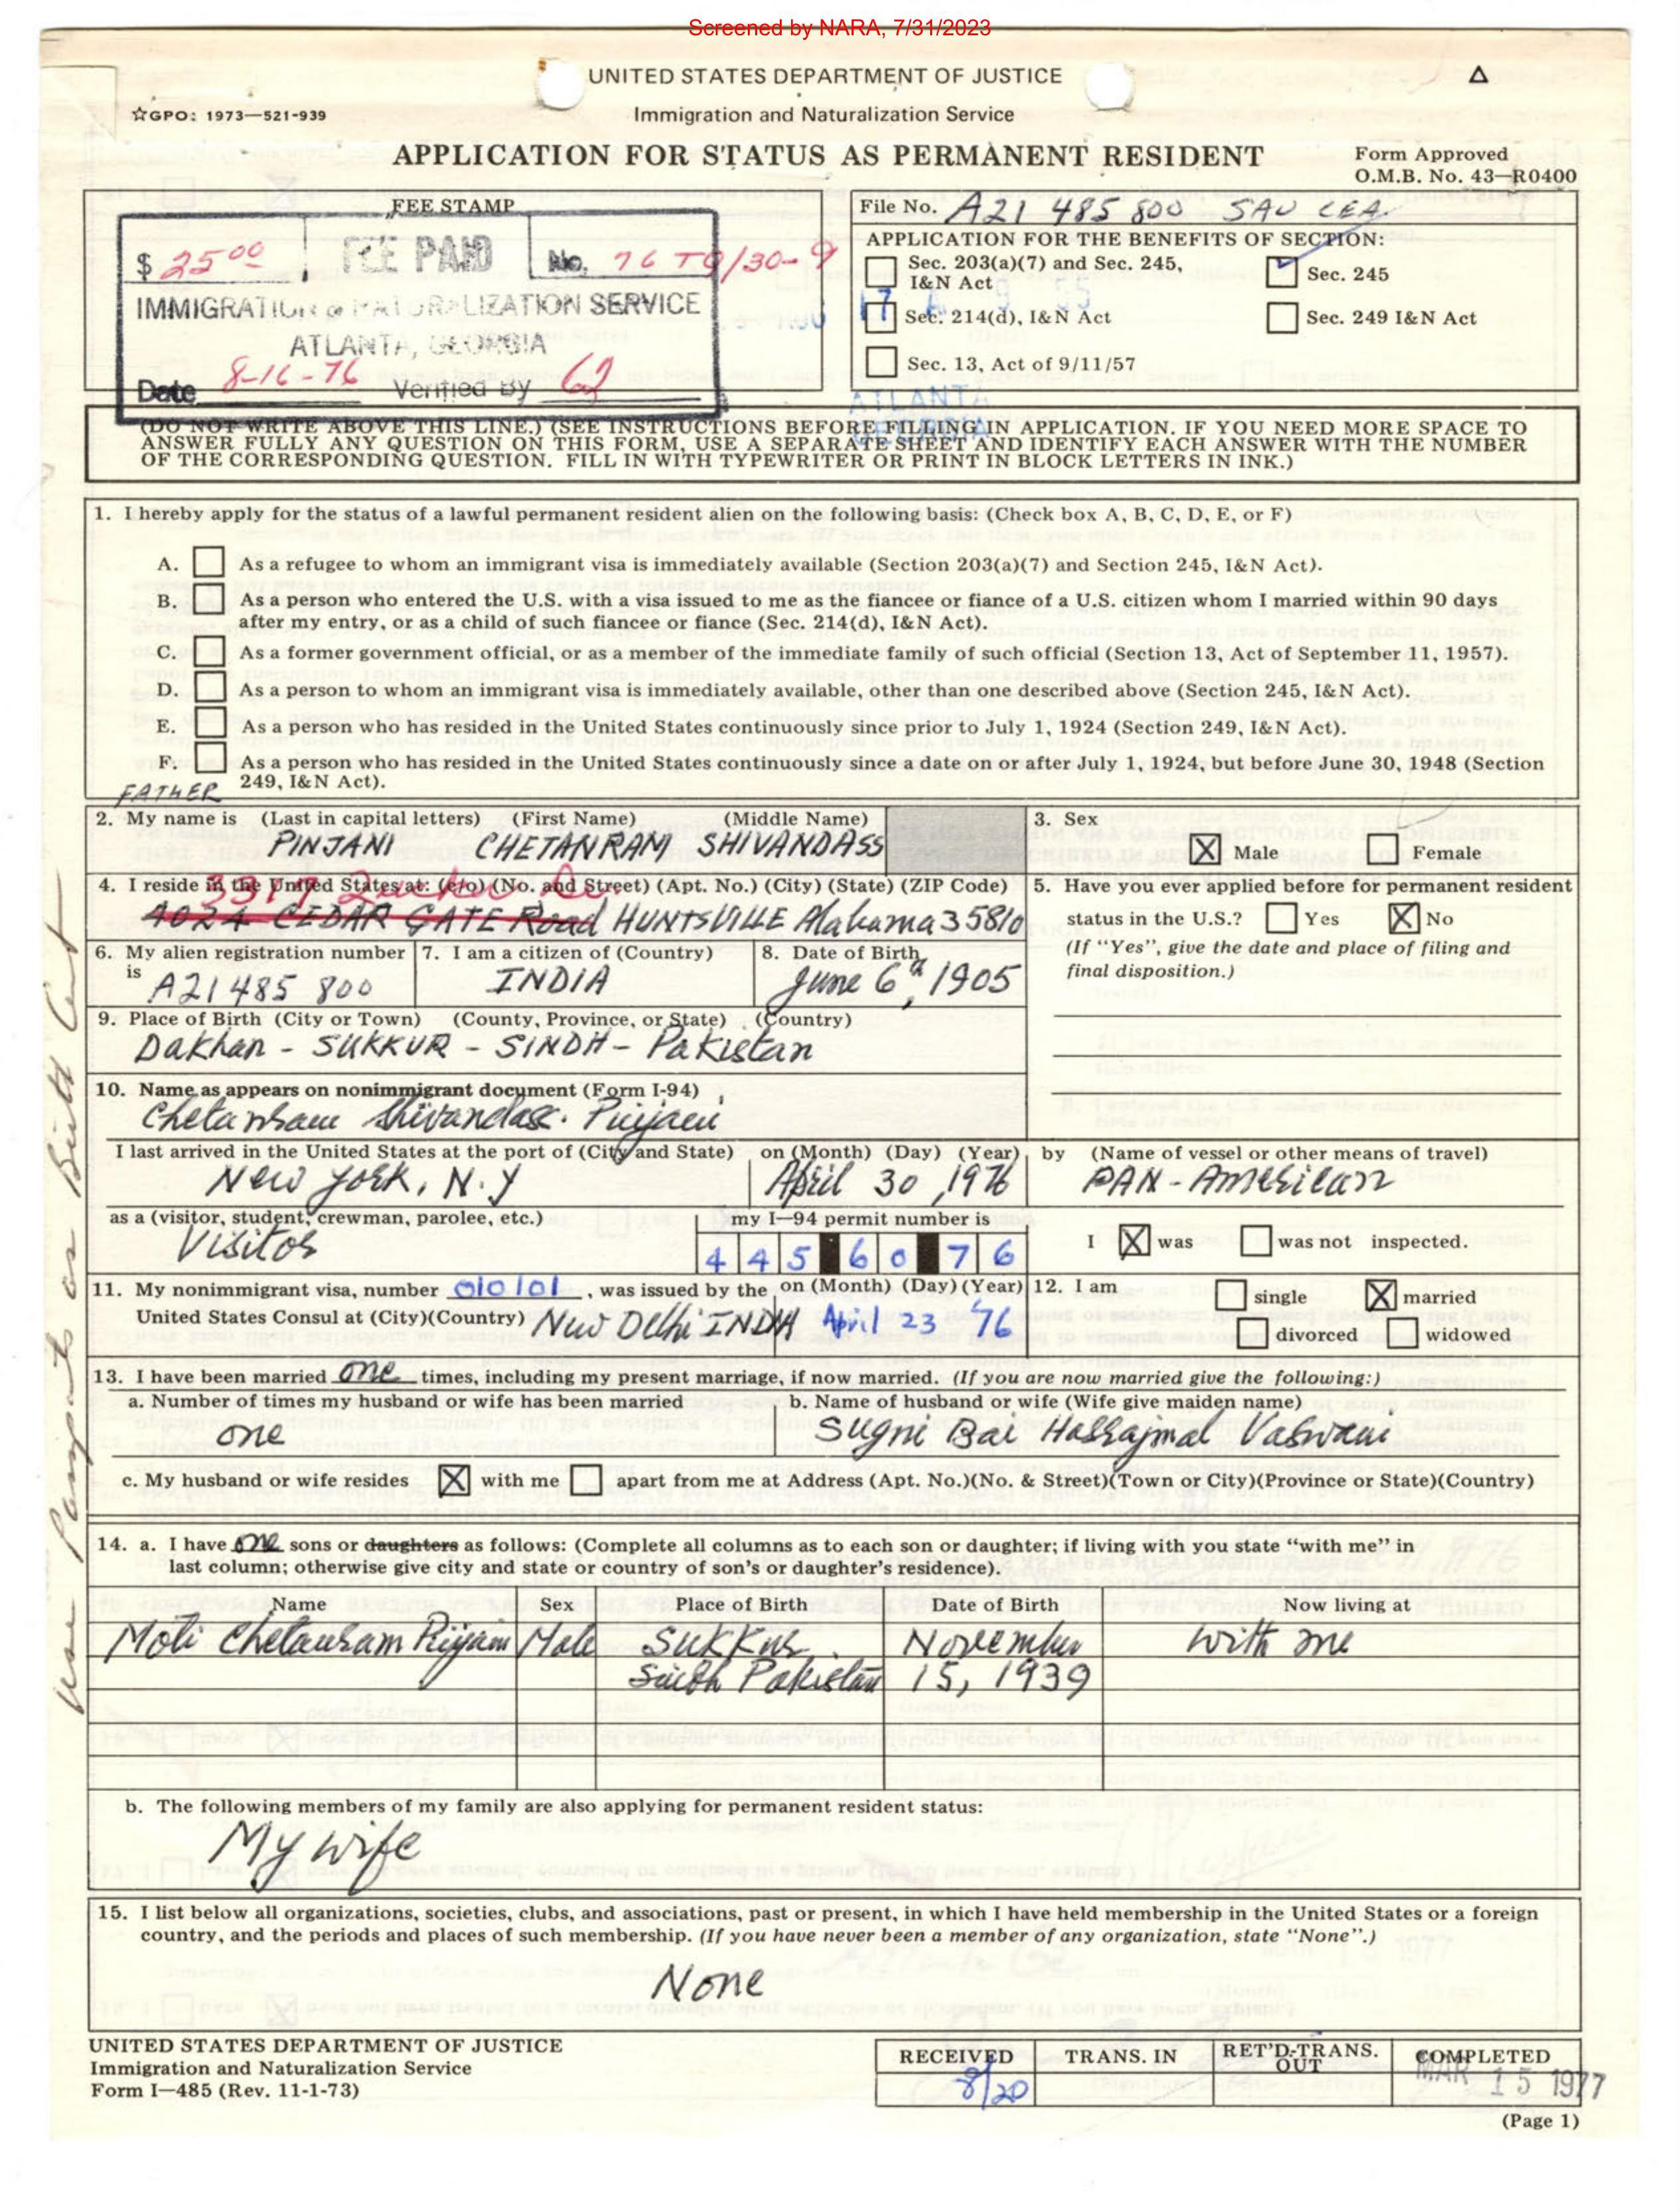 Screened by NARA, 7/31/2023
UNITED STATES DEPARTMENT OF JUSTICE
☆GPO: 1973—521-939
Immigration and Naturalization Service
APPLICATION FOR STATUS AS PERMANENT RESIDENT
Form Approved
O.M.B. No. 43—R0400
FEE STAMP
$ 25 00 FEE PAID No. 76
IMMIGRATION & NATURALIZATION SERVICE
ATLANTA, GEORGIA
Date 8-16-76 Verified By
File No. A21 485 800 SAU
APPLICATION FOR THE BENEFITS OF SECTION:
Sec. 203(a)(7) and Sec. 245, I&N Act
Sec. 245
Sec. 214(d), I&N Act
Sec. 249 I&N Act
Sec. 13, Act of 9/11/57
ATLANTA
GEORGIA
(DO NOT WRITE ABOVE THIS LINE.) (SEE INSTRUCTIONS BEFORE FILLING IN APPLICATION. IF YOU NEED MORE SPACE TO
ANSWER FULLY ANY QUESTION ON THIS FORM, USE A SEPARATE SHEET AND IDENTIFY EACH ANSWER WITH THE NUMBER
OF THE CORRESPONDING QUESTION. FILL IN WITH TYPEWRITER OR PRINT IN BLOCK LETTERS IN INK.)
1. I hereby apply for the status of a lawful permanent resident alien on the following basis: (Check box A, B, C, D, E, or F)
A. As a refugee to whom an immigrant visa is immediately available (Section 203(a)(7) and Section 245, I&N Act).
B. As a person who entered the U.S. with a visa issued to me as the fiancee or fiance of a U.S. citizen whom I married within 90 days
after my entry, or as a child of such fiancee or fiance (Sec. 214(d), I&N Act).
C. As a former government official, or as a member of the immediate family of such official (Section 13, Act of September 11, 1957).
D. As a person to whom an immigrant visa is immediately available, other than one described above (Section 245, I&N Act).
E. As a person who has resided in the United States continuously since prior to July 1, 1924 (Section 249, I&N Act).
F. As a person who has resided in the United States continuously since a date on or after July 1, 1924, but before June 30, 1948 (Section
249, I&N Act).
FATHER
2. My name is (Last in capital letters) (First Name) (Middle Name)
PINJANI CHETANRAM SHIVANDASS
3. Sex
X Male Female
4. I reside in the United States at: (c/o) (No. and Street) (Apt. No.) (City) (State) (ZIP Code)
3317
4024 CEDAR GATE Road HUNTSVILLE Alabama 35810
5. Have you ever applied before for permanent resident
status in the U.S.? Yes X No
(If "Yes", give the date and place of filing and
final disposition.)
6. My alien registration number
is A21 485 800
7. I am a citizen of (Country)
INDIA
8. Date of Birth
June 6th, 1905
9. Place of Birth (City or Town) (County, Province, or State) (Country)
Dakhan - SUKKUR - SINDH - Pakistan
10. Name as appears on nonimmigrant document (Form I-94)
Chetanram Shivandass. Pinjani
I last arrived in the United States at the port of (City and State) on (Month) (Day) (Year) by (Name of vessel or other means of travel)
New York, N.Y April 30, 1976 PAN-American
as a (visitor, student, crewman, parolee, etc.) my I—94 permit number is
Visitor 4 4 5 6 0 7 6
I X was was not inspected.
11. My nonimmigrant visa, number 010101, was issued by the on (Month) (Day) (Year)
United States Consul at (City)(Country) New Delhi INDIA April 23 '76
12. I am single X married
divorced widowed
13. I have been married one times, including my present marriage, if now married. (If you are now married give the following:)
a. Number of times my husband or wife has been married
one
b. Name of husband or wife (Wife give maiden name)
Sugni Bai Hassajmal Vaswani
c. My husband or wife resides X with me apart from me at Address (Apt. No.)(No. & Street)(Town or City)(Province or State)(Country)
14. a. I have one sons or daughters as follows: (Complete all columns as to each son or daughter; if living with you state "with me" in
last column; otherwise give city and state or country of son's or daughter's residence).
Name Sex Place of Birth Date of Birth Now living at
Moti Chetanram Pinjani Male Sukkur November with me
Sindh Pakistan 15, 1939
b. The following members of my family are also applying for permanent resident status:
My wife
15. I list below all organizations, societies, clubs, and associations, past or present, in which I have held membership in the United States or a foreign
country, and the periods and places of such membership. (If you have never been a member of any organization, state "None".)
None
UNITED STATES DEPARTMENT OF JUSTICE
Immigration and Naturalization Service
Form I—485 (Rev. 11-1-73)
RECEIVED TRANS. IN RET'D-TRANS. OUT COMPLETED
8/20 MAR 15 1977
(Page 1)